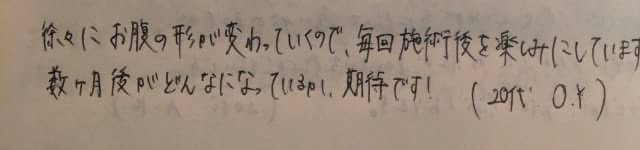 徐々に お腹の形が変わっていくので、毎回施術後を楽しみにしています
数ヶ月後がどんなになっているか、期待です! (20代 O.Y)